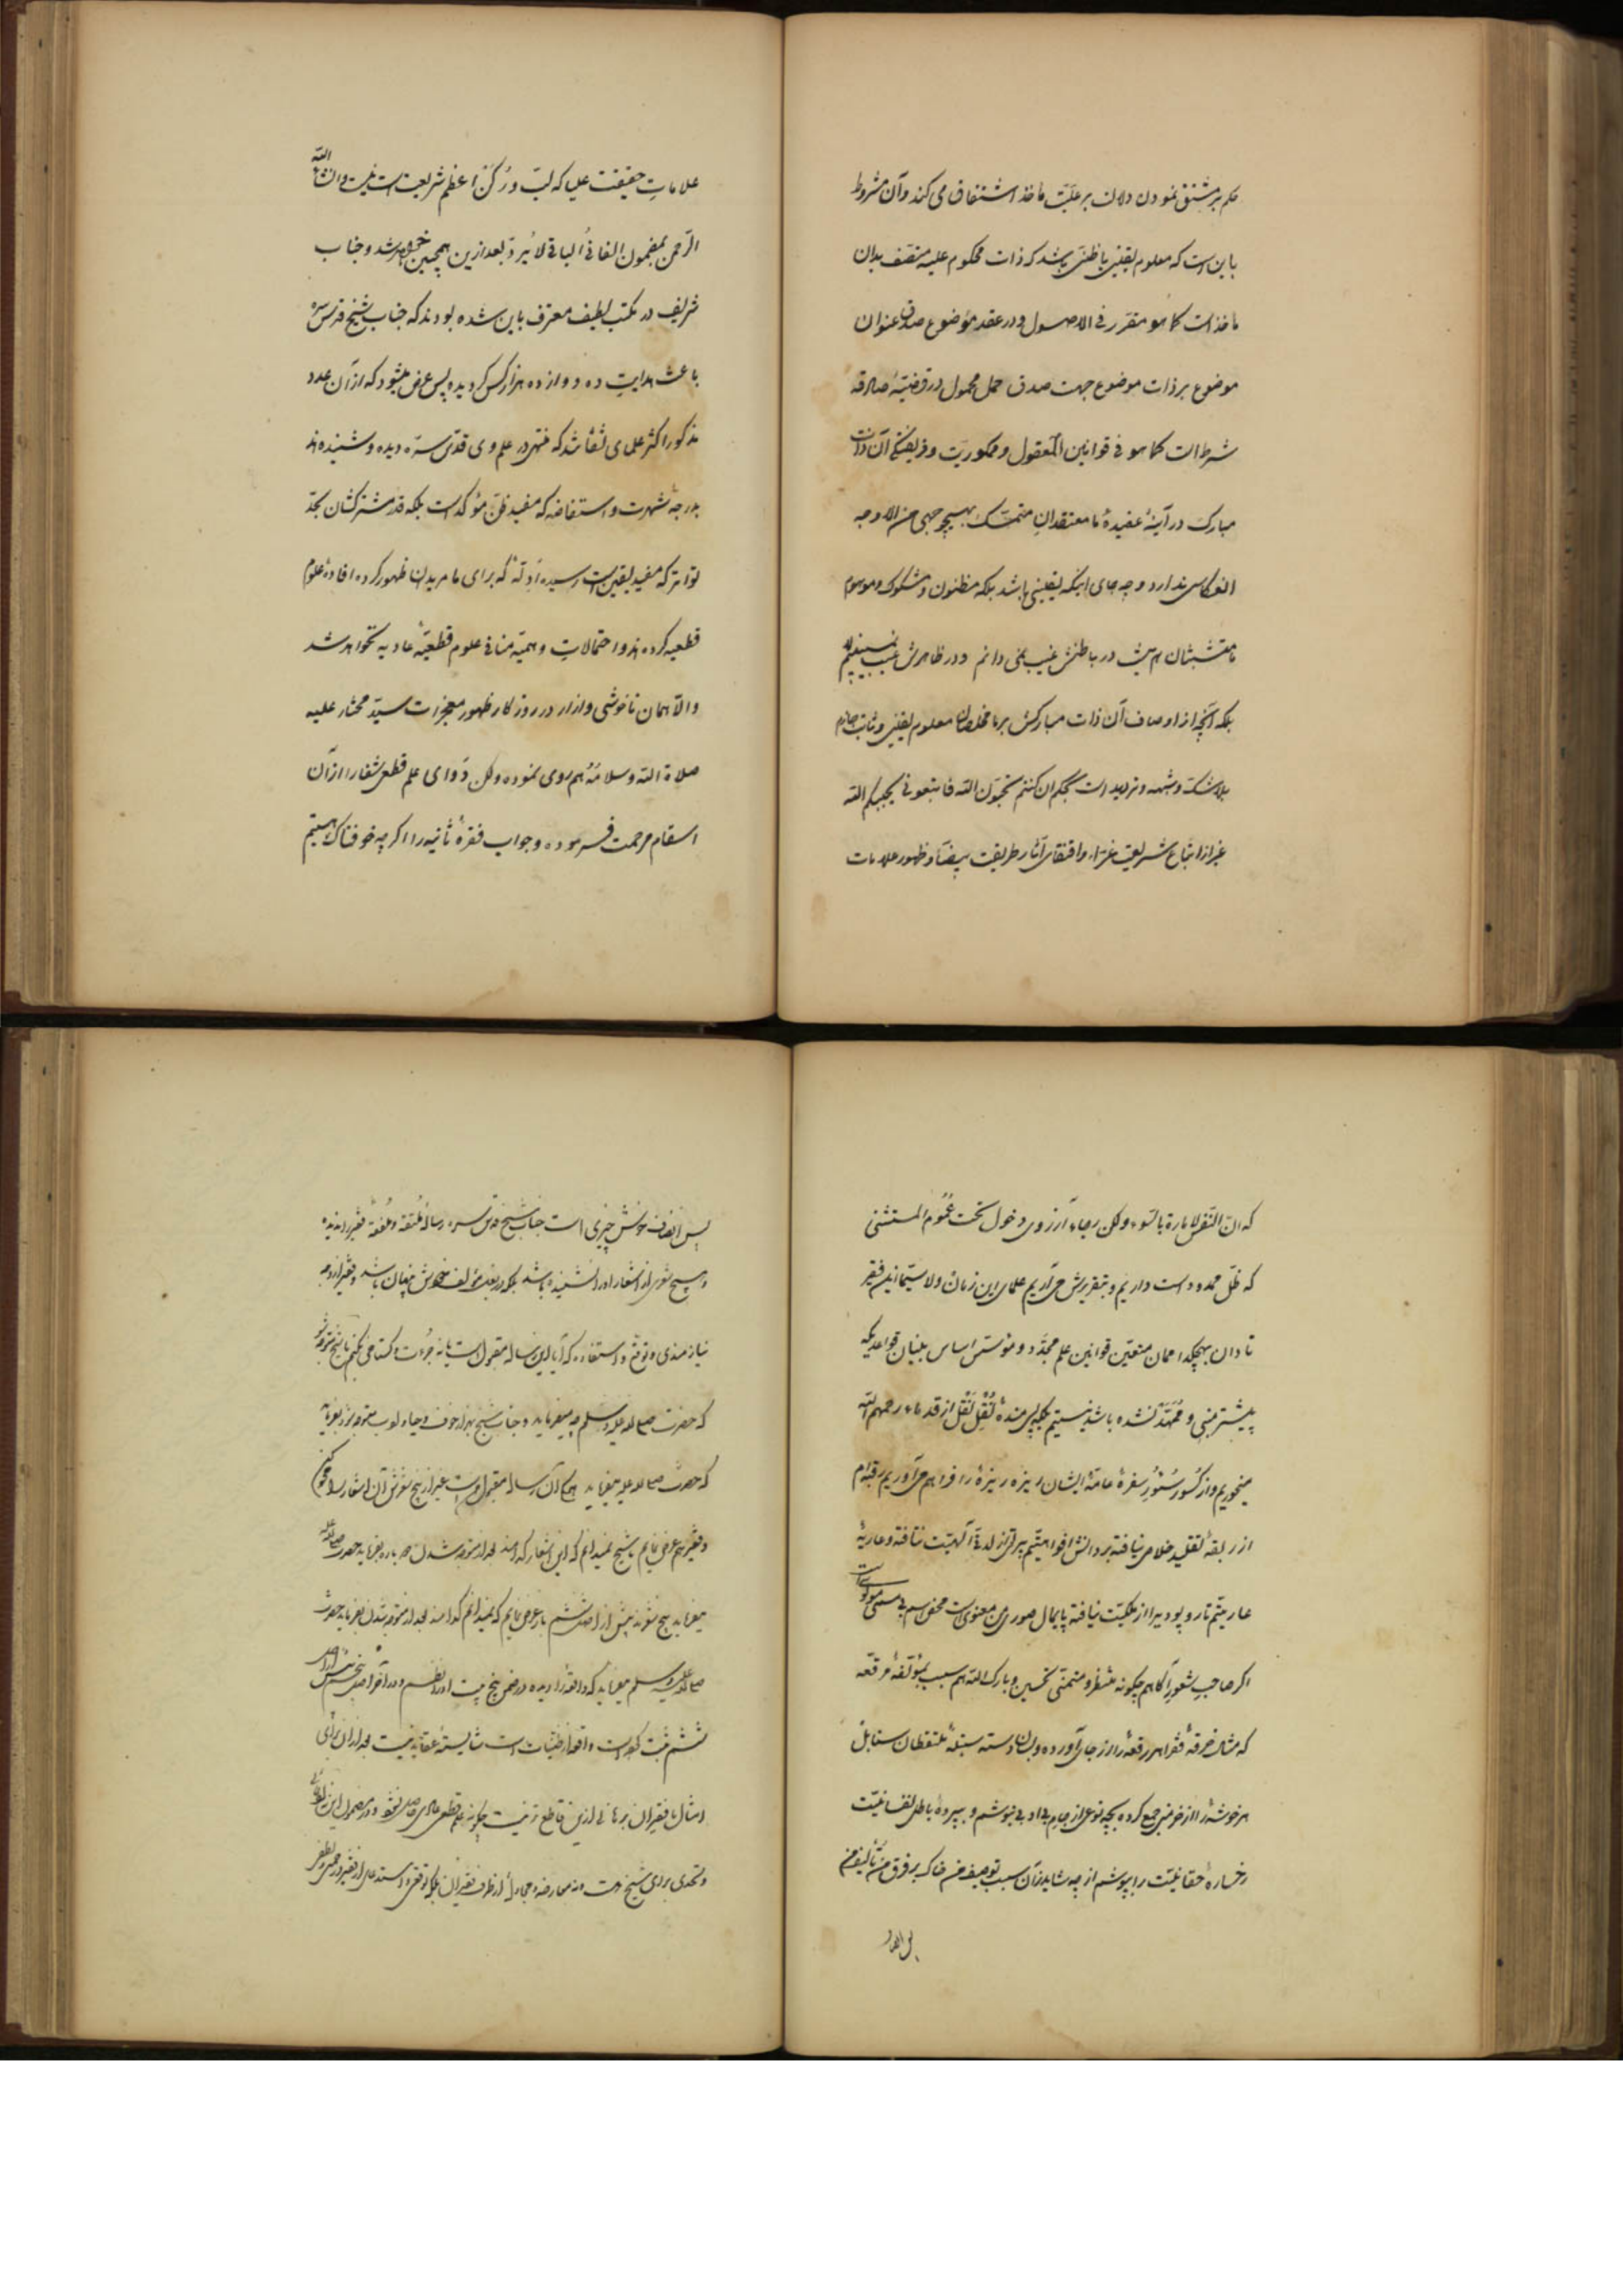 حکم بر مشتق نمودن دلالت بر علیّت مأخذ اشتقاق می کند و آن مشروط
باین است که معلوم یقینی یا ظنی باشد که ذات محکوم علیه متصف بدان
مأخذ است کما هو مقرّر فی الاصول و در عقد موضوع صدق عنوان
موضوع بر ذات موضوع جهت صدق حمل محمول در قضیّهٔ صادقه
شرط است کما هو فی قوانین المعقول و آن ذات
مبارک در آینهٔ عقیدهٔ ما معتقدان متمسّک بهیچ وجهی من الاوجه
انعکاس ندارد و چه جای اینکه یقینی باشد بلکه مظنون و مشکوک و موهوم
ما متشبثان هم نیست در باطنش غیب نمی دانم و در ظاهرش عیب نمی بینم
بلکه آنچه از اوصاف آن ذات مبارکش بر ما مخلصان معلوم یقینی و ثابت جازم
بلا شک و شبهه و تردید است بحکم ان کنتم تحبّون الله فاتبعونی یحببکم الله
غیر از اتباع شریعت غرّاء و اقتفای آثار طریقت بیضاء و ظهور علامات
علامات حقیقت علیا که لبّ و رکن اعظم شریعت است نیست و ان شاء الله
الرّحمن بمضمون الفانی لا یُردّ بعد ازین همچنین خواهد شد و جناب
شریف در مکتب لطیف معترف باین شده بودند که جناب شیخ قدس سره
باعث هدایت ده دوازده هزار کس کردیده پس عرض میشود که از آن عدد
مذکور اکثر علمای ثقات شد که منتهی در علم وی قدّس سرّه دیده و شنیده اند
بدرجهٔ شهرت و استفاضه که مفید ظنّ مؤکد است بلکه قدر مشترکشان بحدّ
تواتر که مفید یقین است رسیده ادلّهٔ که برای ما مریدان ظهور کرده افادهٔ علوم
قطعیه کرده اند و احتمالات وهمیّه منافی علوم قطعیّهٔ عادیه نخواهد شد
والّا همان ناخوشی و ازار در روز کار ظهور معجزات سیّد مختار علیه
صلاة الله و سلامُهُ هم روی نموده ولکن دوای علم قطعی شفا را از آن
اسقام مرحمت فرموده و جواب فقرهٔ ثانیه را اکر چه خوفناک هستیم
که انّ النّفس لامارة بالسّوء ولکن رجاء آرزوی دخول تحت عُموم المستثنی
که ظلّ ممدود است داریم و بتقریرش می آریم علمای این زمان و لا سیّما این فقیر
نادان بهیچکدامان متقین قوانین علم مجدّد و مؤسس اساس بنیان قواعدیکه
پیشتر مبنی و مُمَهّد نشده باشد نیستیم بلکه پس مندهٔ نُقل نَقل از قدماء رحمهم الله
میخوریم و از کُسور سُتور سفرهٔ عامّهٔ ایشان ریزه ریزهٔ را فراهم می آوریم رقبه ام
از ربقهٔ تقلید خلاصی نیافته
عاریتم تار و پود پیرا از ملکیت نیافته پایمال صوری من معنوی است محض اسم بی مسمی
اکر صاحب شعور آکاهم چکونه منتظر و متمنّی تحسین و بارک الله هم سبب مؤلّفهٔ مرقّعه
که مثال خرقهٔ فقرا هر رقعه را از جای آورده و بسان دسته سنبلهٔ ملتقطان سنابل
هر خوشهٔ را از خرمنی جمع کرده بچه نوعی از جام بنوشم و بپردهٔ باطل نفسانیّت
رخسارهٔ حقانیّت را بپوشم از چه شاید از آن سبب توصیف من خاک بر فرق من تألیف من
پس انصاف
پس انصاف خوش چیزی است جناب شیخ قدس سره رسالهٔ مُلتقطه و مُلفّقهٔ فقیر را ندیده
و هیچ شعری از اشعار او را نشنیده باشد بلکه در بغداد مؤلف خودش پنهان باشد و فقیر از وجه
نیازمندی و توقع و استفاده که آیا این رساله مقبول است یا نه جرأت و کستاخی بکنم با شیخ
که حضرت صلی الله علیه و سلم چه میفرماید و جناب شیخ بهزار خوف و حیا و ادب متوجه شود بفرماید
که حضرت صلی الله علیه میفرماید آن رساله مقبول است غیر از پنج شعرش آن اشعار را محو کن
و فقیر هم عرض نمایم یا شیخ نمیدانم که این اشعار کدامند بعد از متوجه شدن دوباره بفرماید حضرت صلی الله علیه
میفرماید پنج شعر پیش از اصل ششم باز عرض نمایم که نمیدانم کدامند بعد از متوجه شدن بفرماید حضرت
صلی الله علیه و سلم میفرماید که واقعهٔ را دیده در ضمن پنج بیت او را نظم و در آخر اصل پنجم پیش از اصل
ششم ثبت کرده است واقعه از ظنیات است شایستهٔ عقاید نیست بعد از آن برای
امثال ما فقیران برهانی ازین قاطع تر نیست چکونه علم قطعی عادی حاصل نشود و در مضمون این
و تحدی برای شیخ است و نه معارضه و مجادله از طرف فقیران بلکه توقعی و استدعای از فقیر